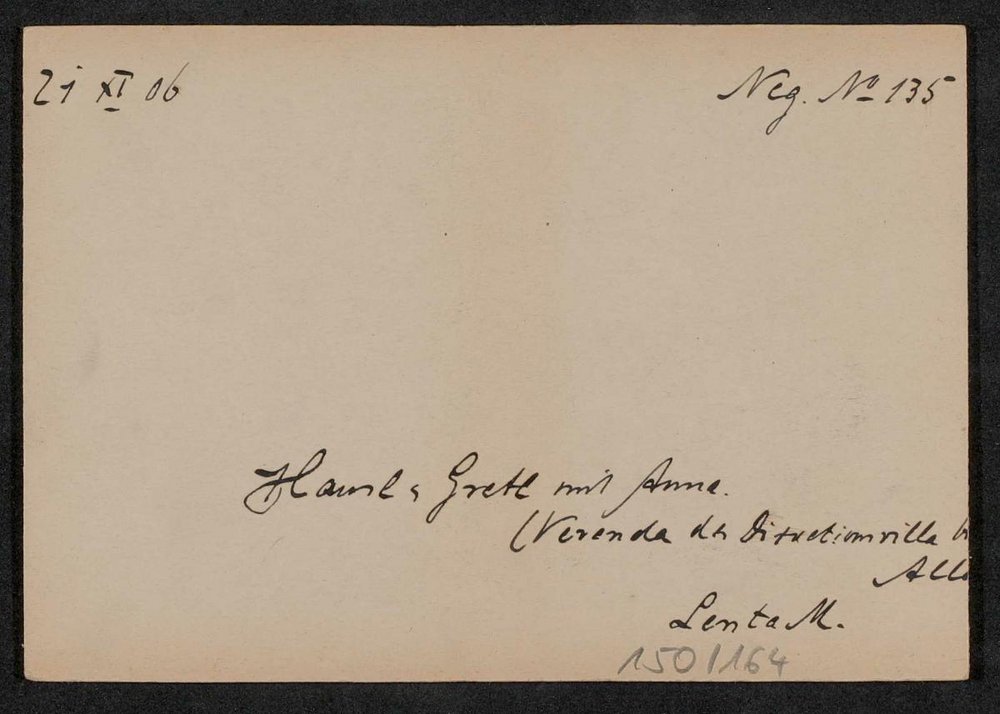 21 XI 06
Neg. No 135
Hansl & Gretl mit Anna.
(Veranda der Direktionsvilla
Lenta M.
150/164